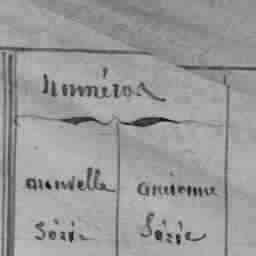 Numéros
nouvelle ancienne
Série Série